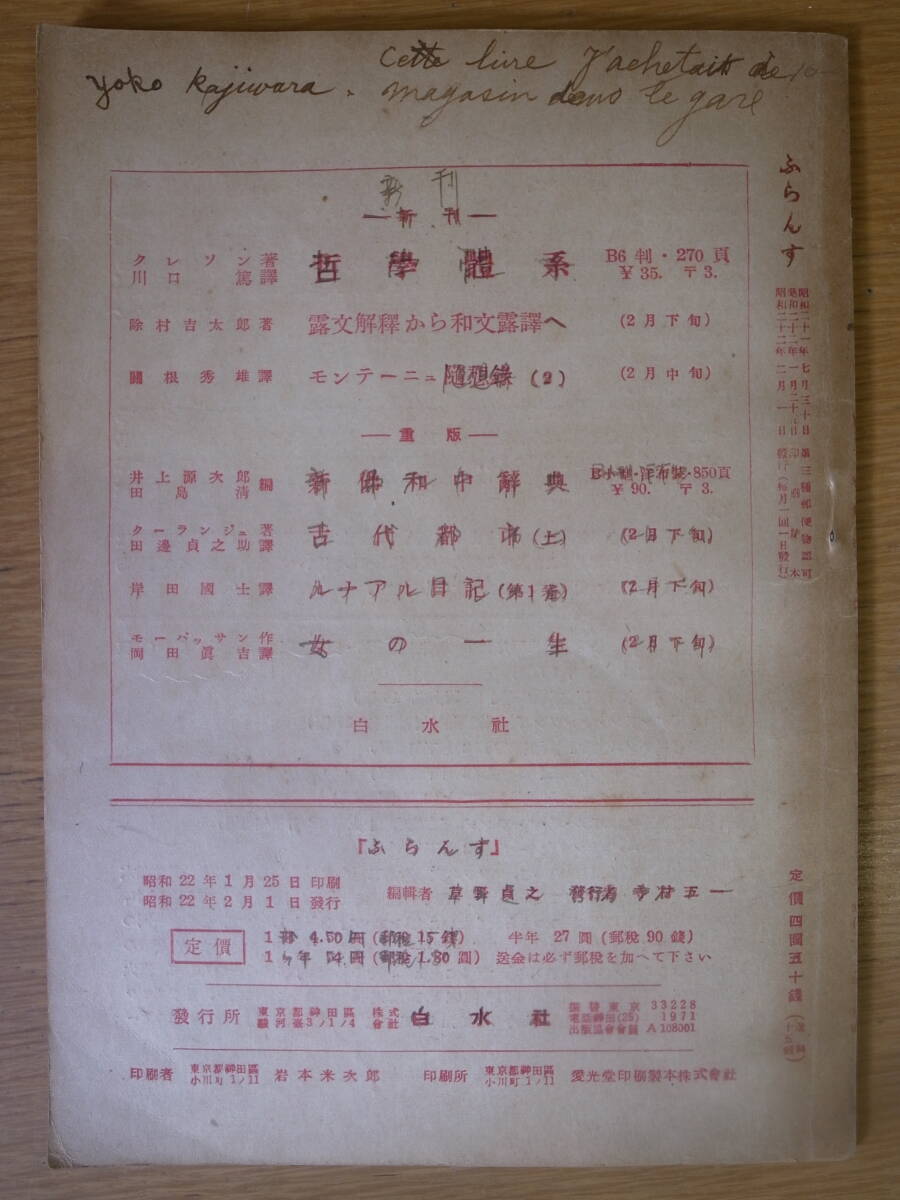 Cette livre J'achetait de
Yoko Kajiwara. magasin dans le gare
新刊
—新刊—
クレソン著
川口篤譯
哲學體系
B6判・270頁
¥35. 〒3.
除村吉太郎著 露文解釋から和文露譯へ (2月下旬)
關根秀雄譯 モンテーニュ隨想錄(2) (2月中旬)
—重版—
井上源次郎
田島清 編
新佛和中辭典
B小型・洋布裝・850頁
¥90. 〒3.
クーランジュ著
田邊貞之助譯
古代都市(上) (2月下旬)
岸田國士譯 ルナアル日記(第1卷) (2月下旬)
モーパッサン作
岡田眞吉譯
女の一生 (2月下旬)
白水社
『ふらんす』
昭和22年1月25日印刷
昭和22年2月1日發行
編輯者 草野貞之 發行者 寺村五一
定價
1部 4.50圓(郵稅15錢) 半年 27圓(郵稅90錢)
1ヶ年 54圓(郵稅1.80圓) 送金は必ず郵稅を加へて下さい
發行所
東京都神田區
駿河臺3ノ1/4
株式
會社
白水社
振替東京 33228
電話神田(25) 1971
出版協會會員 A108001
印刷者
東京都神田區
小川町1ノ11
岩本米次郎
印刷所
東京都神田區
小川町1ノ11
愛光堂印刷製本株式會社
ふらんす
昭和二十一年七月三十日第三種郵便物認可
昭和二十二年二月一日發行(每月一回一日發行)
定價四圓五十錢